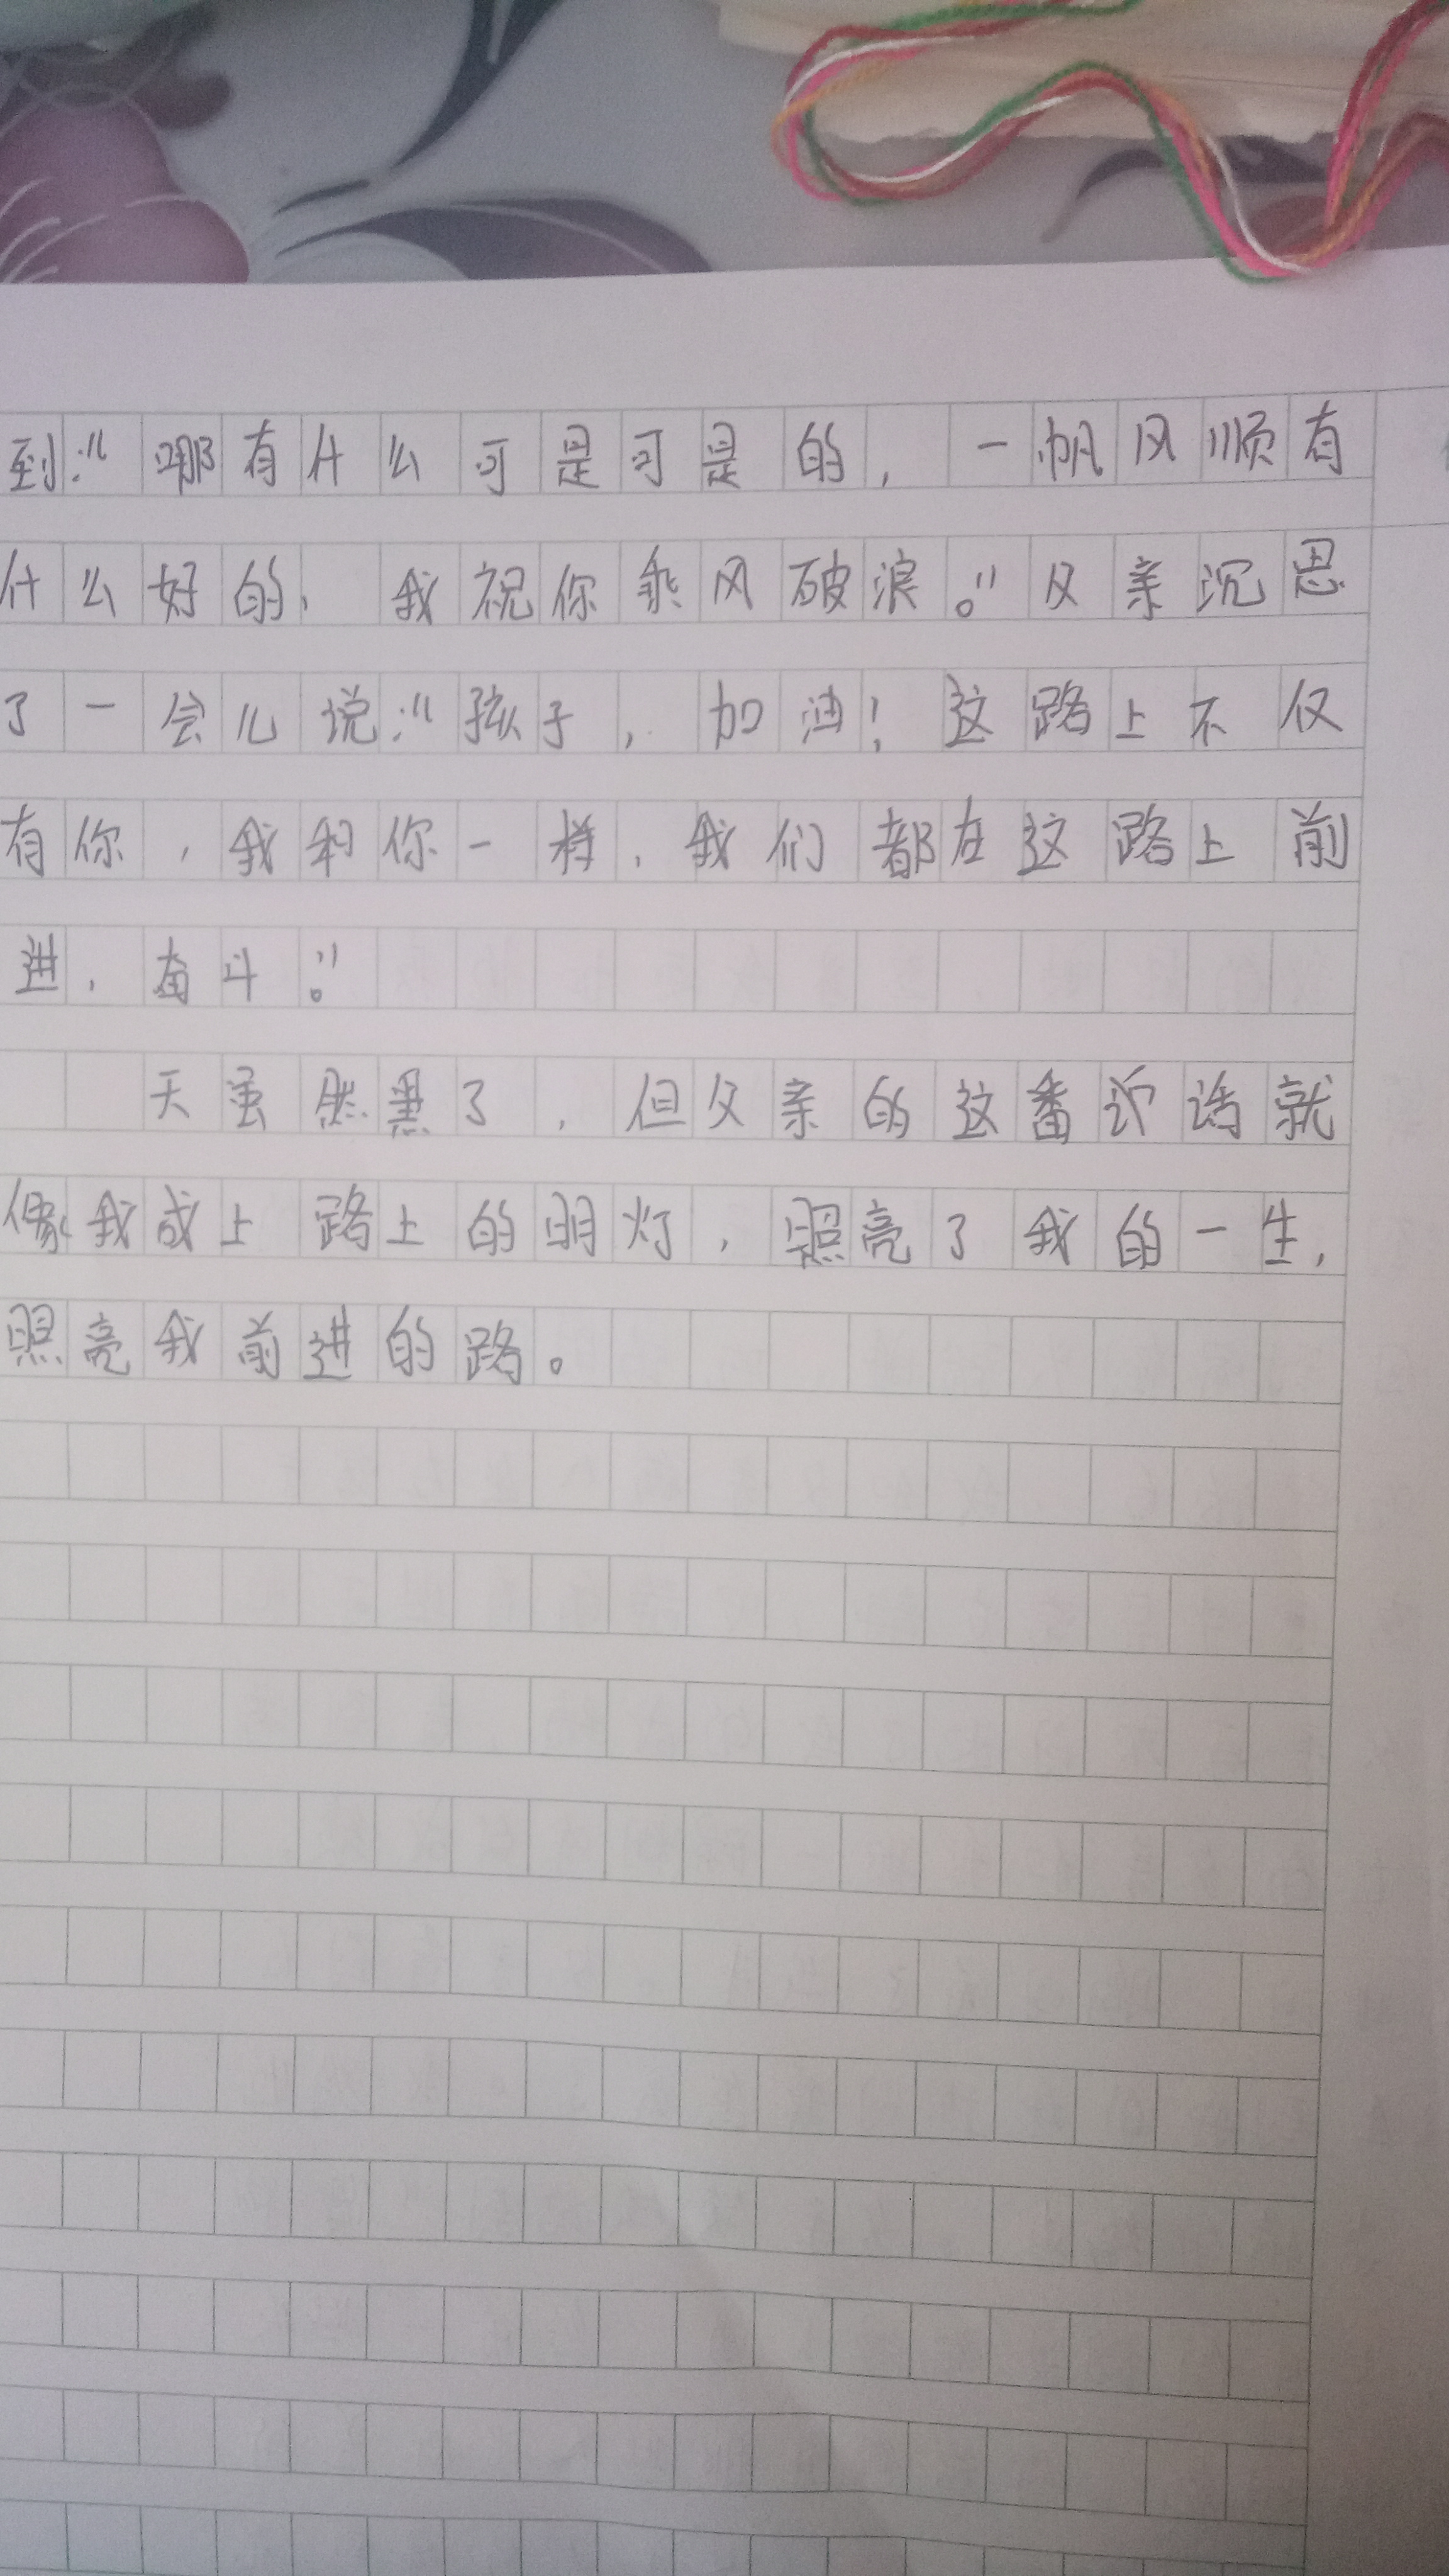 到：“哪有什么可是可是的，一帆风顺有
什么好的，我祝你乘风破浪。”父亲沉思
了一会儿说：“孩子，加油！这路上不仅
有你，我和你一样，我们都在这路上前
进，奋斗。”
天虽然黑了，但父亲的这番话就
像我成上路上的明灯，照亮了我的一生，
照亮我前进的路。